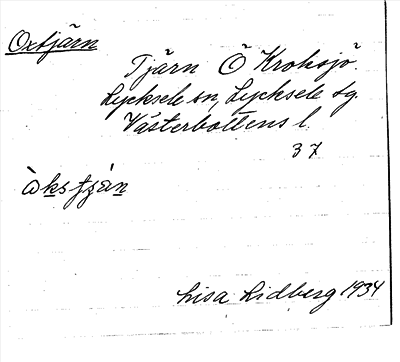 Oxtjärn
Tjärn Ö Kroksjö.
Lycksele sn, Lycksele sg.
Västerbottens l.
37
àkstjá̀n
Lisa Lidberg 1934